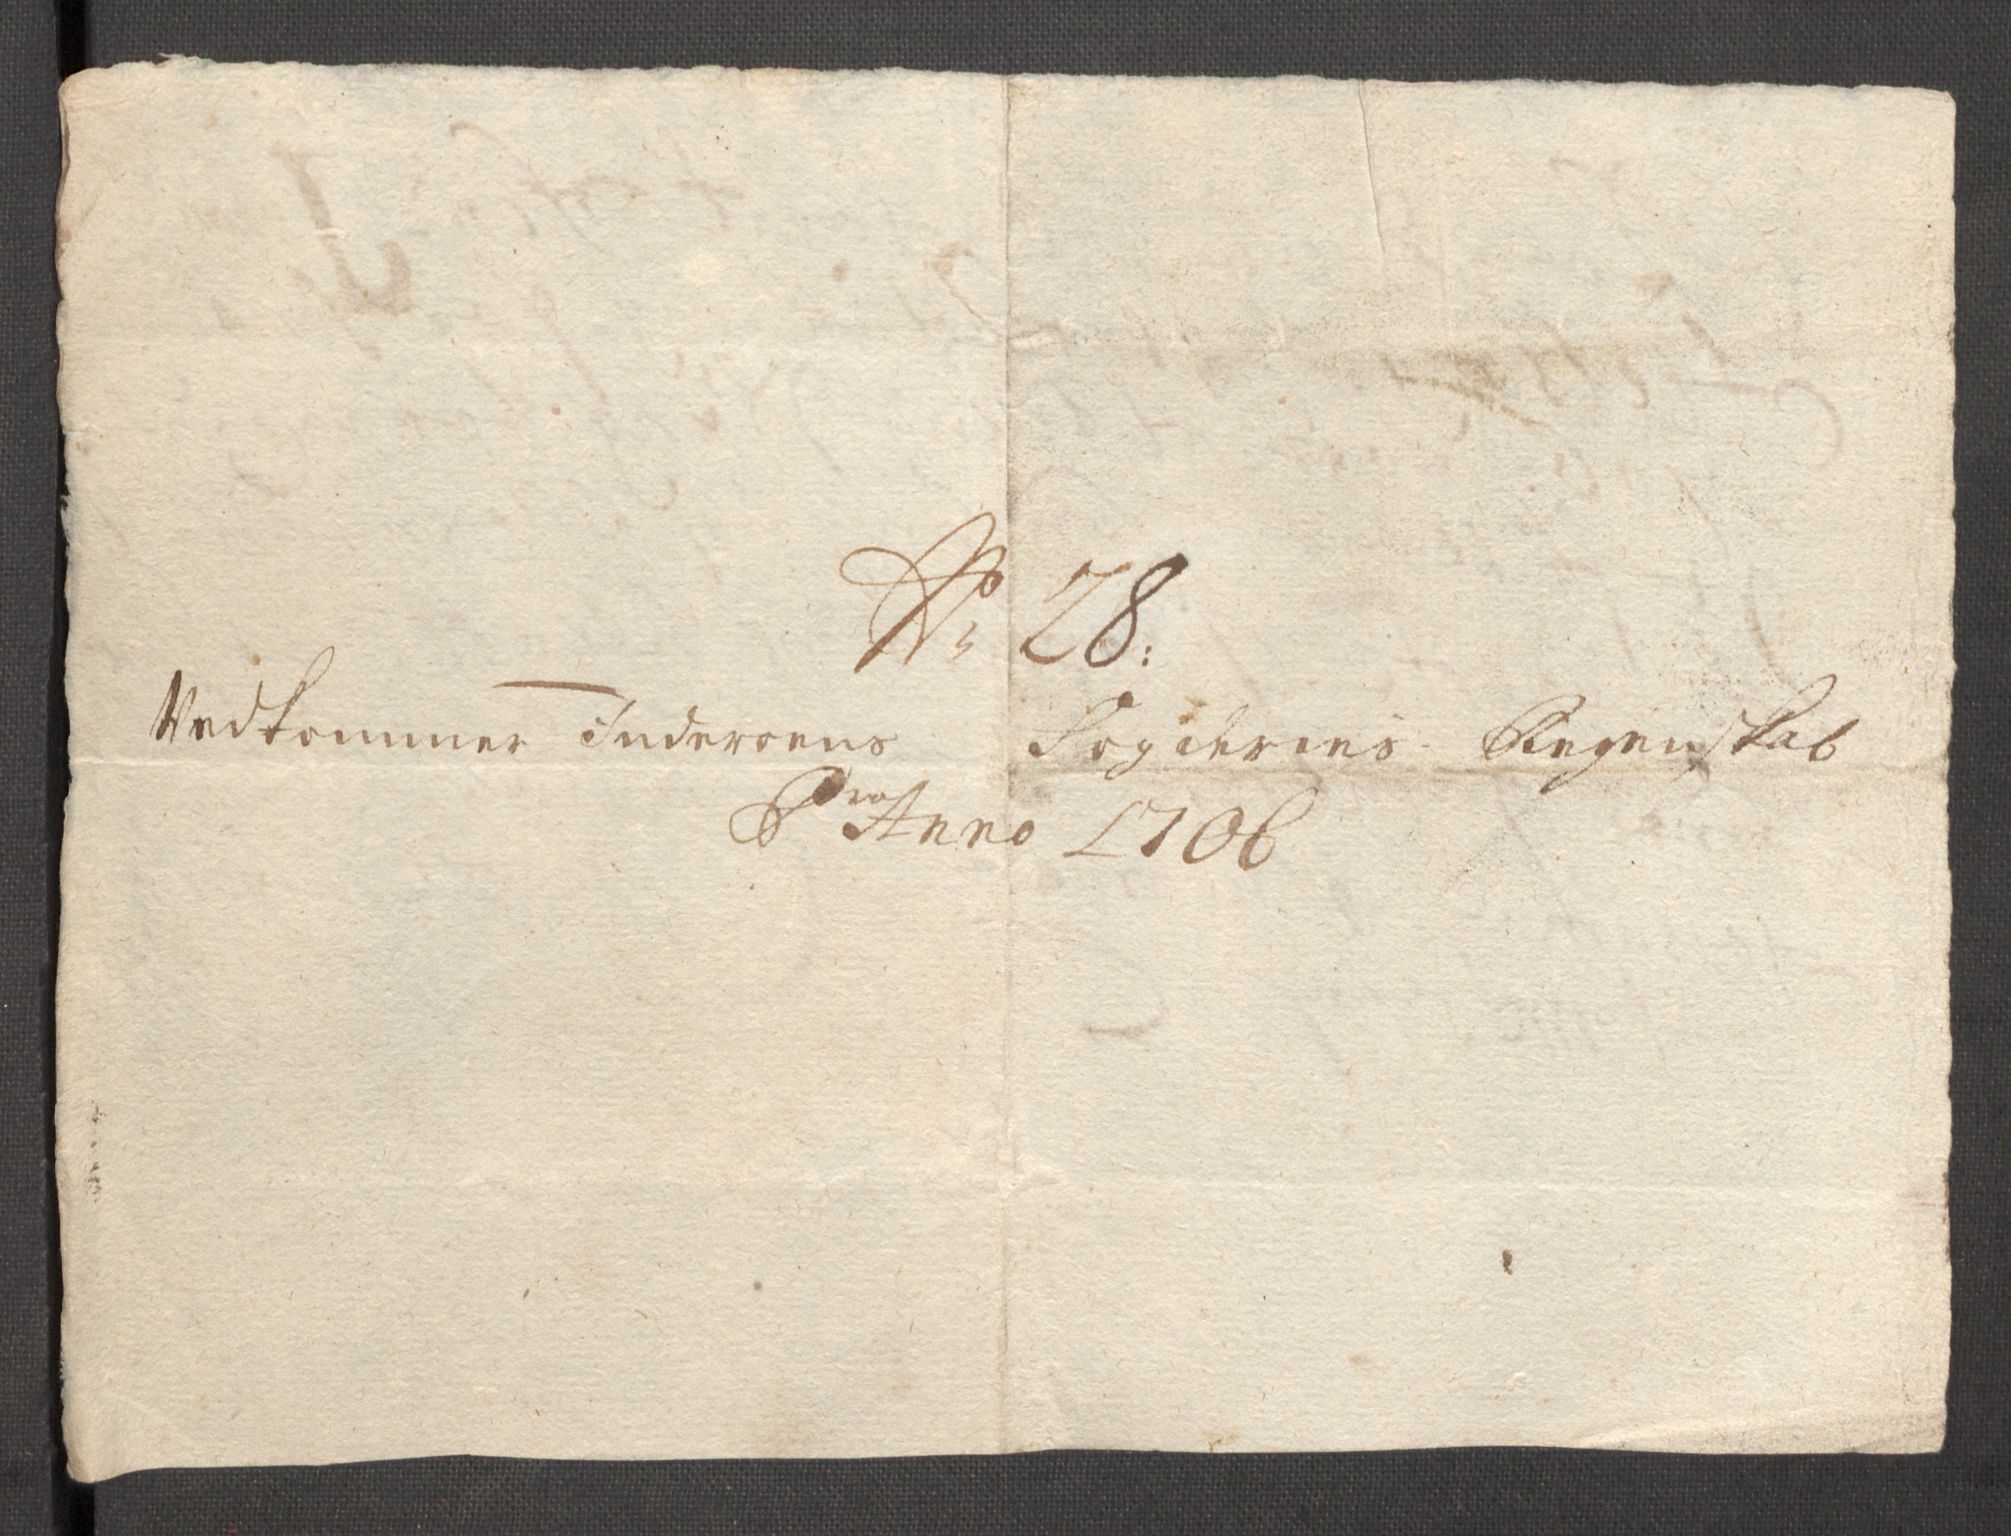 No 28:
Vedkommer Inderoens Fogderies Regenskab
Pro Anno 1706